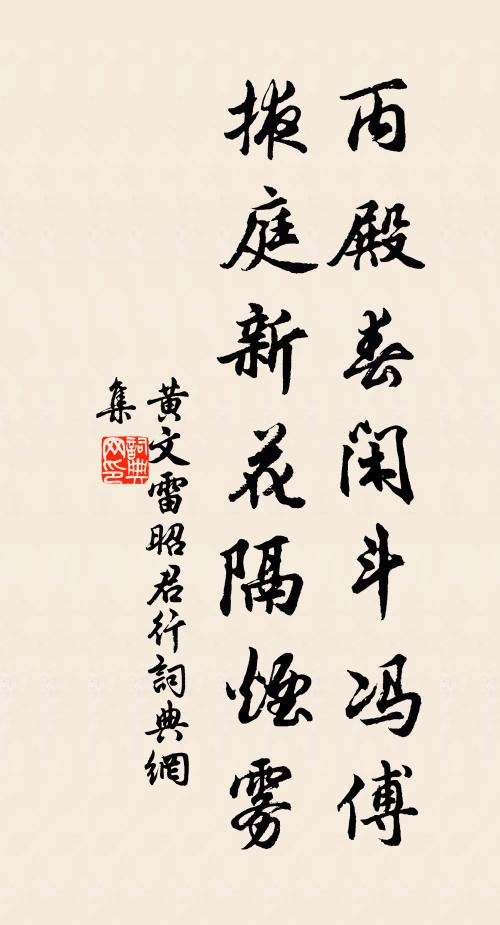 丙殿春闲斗冯傅
掖庭新花隔煙雾
黄文雷昭君行詞典網
集
詞典
网印